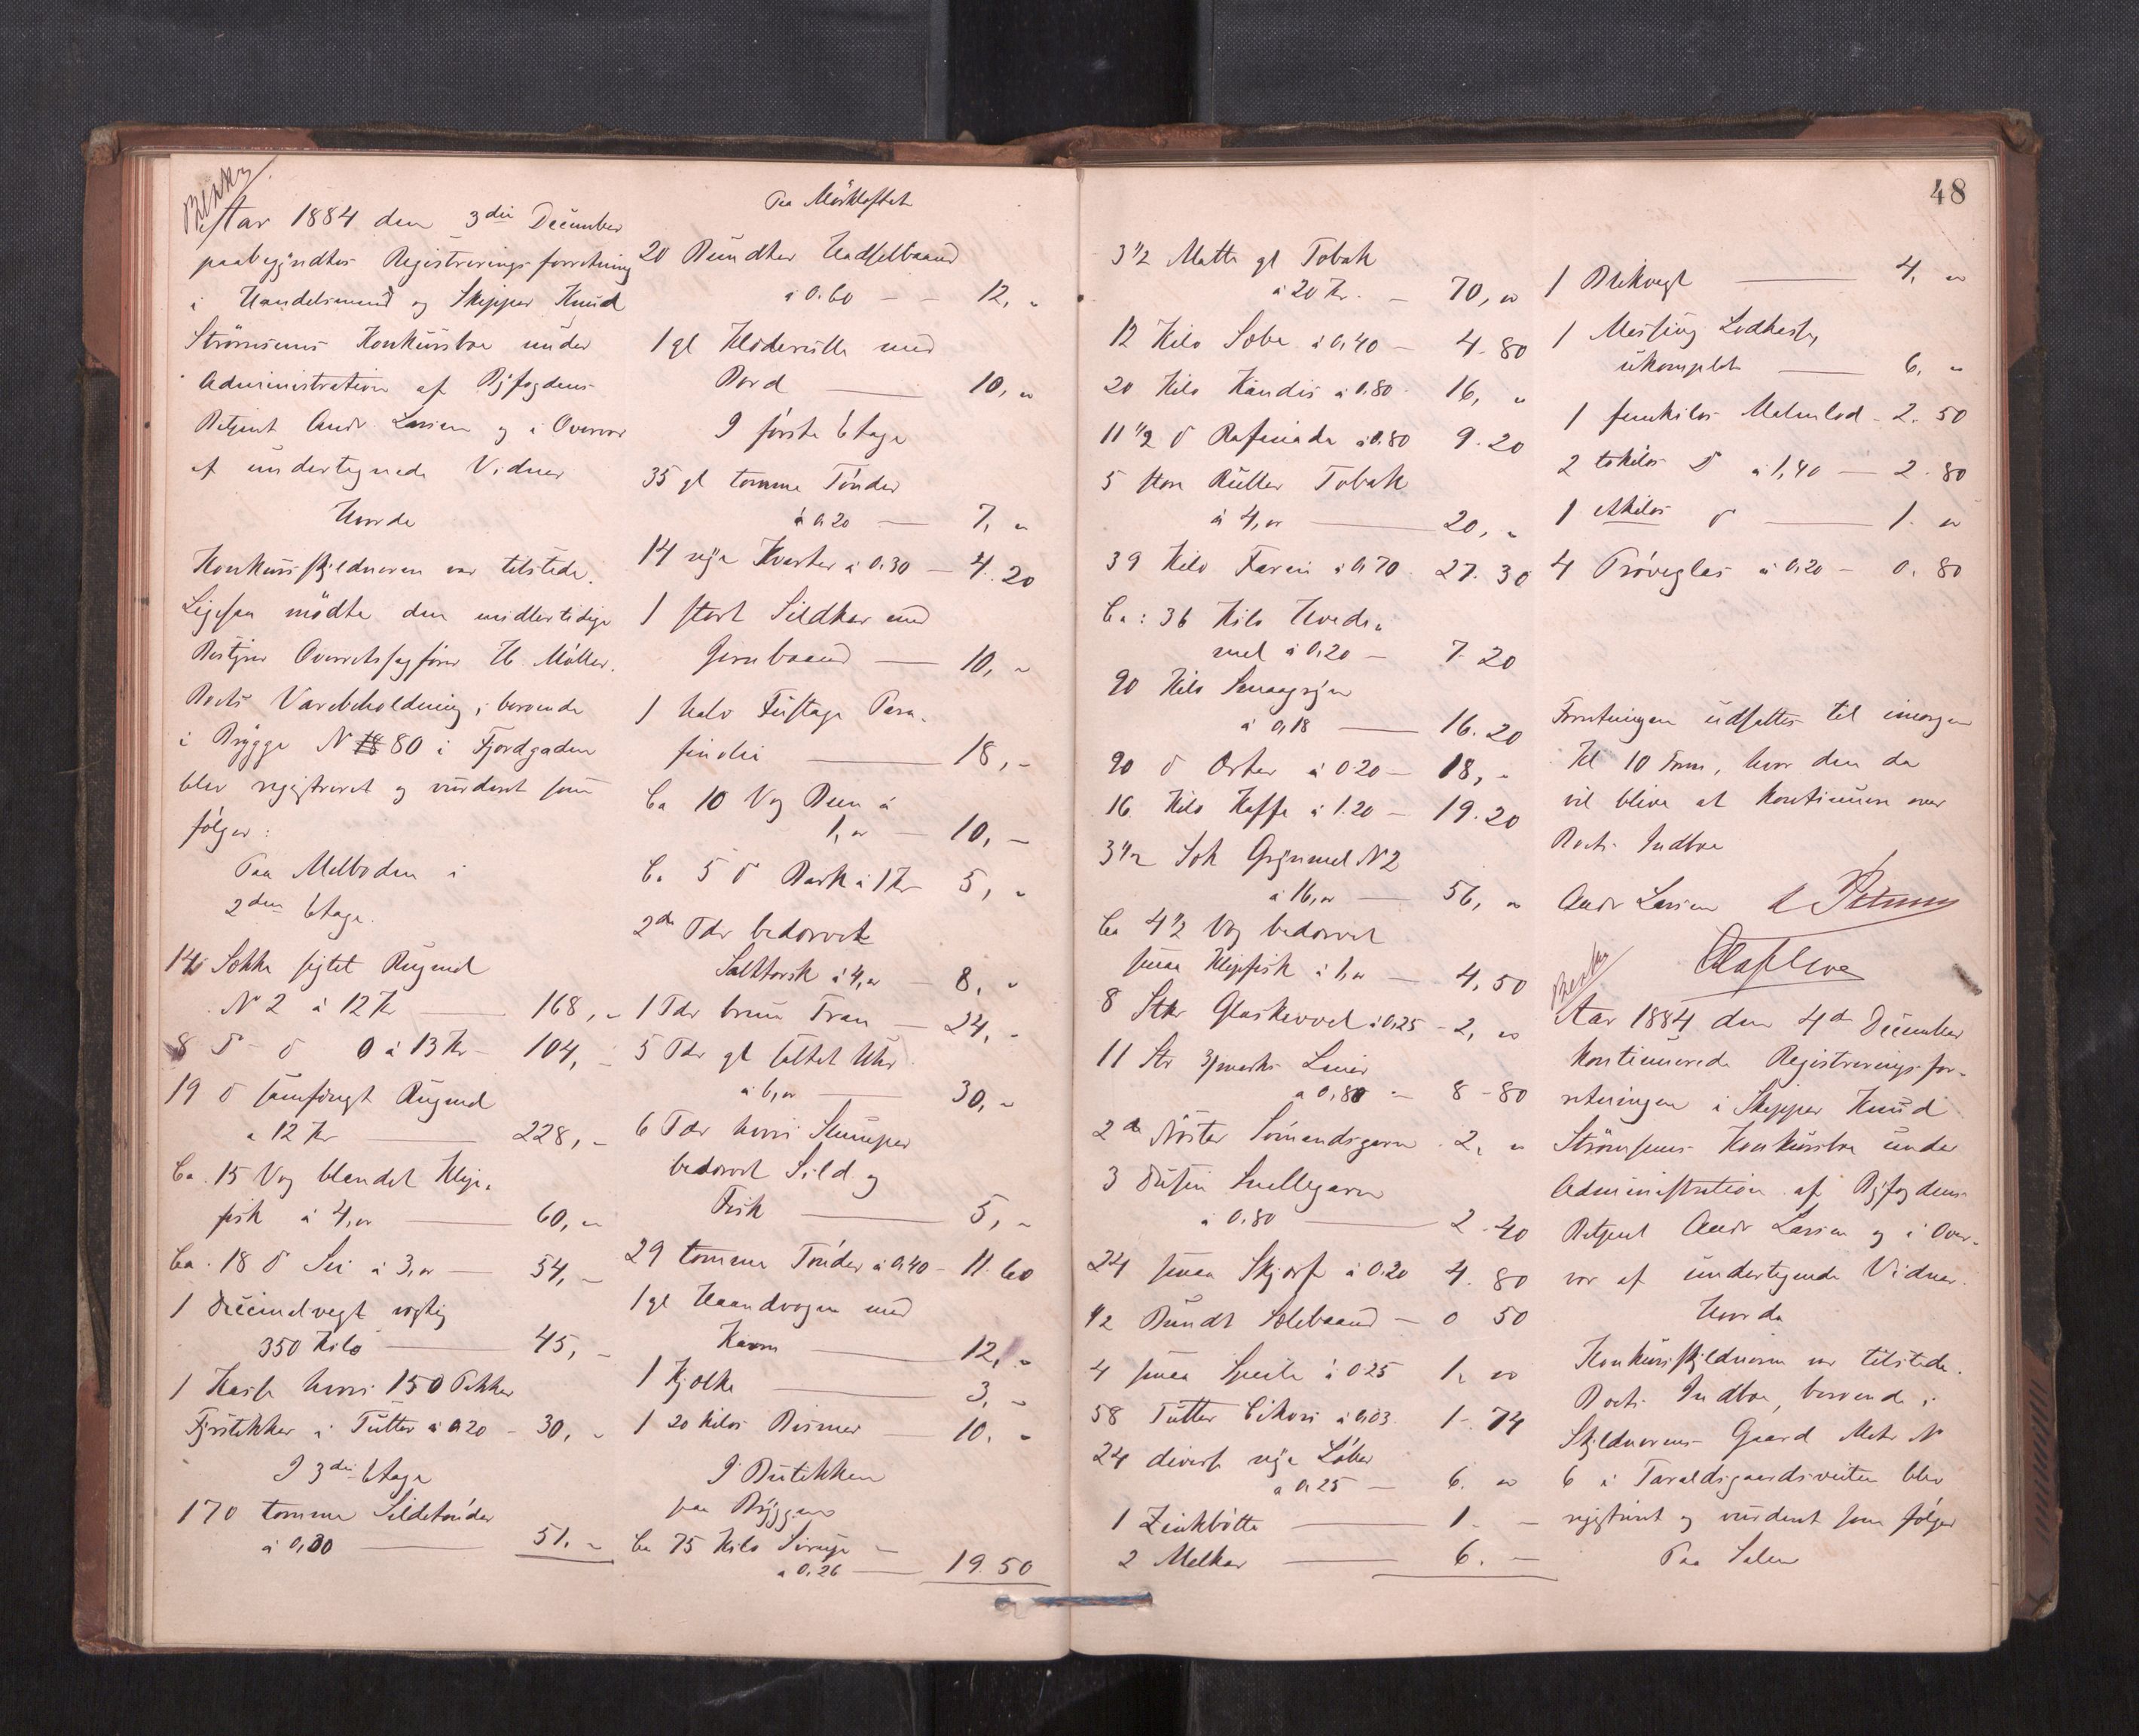 Aar 1884 den 3die December
paabegyndtes Registreringsforretning
i Handelsmand og Skipper Knud
Strömsens Konkursbo under
Administration af Byfogdens
Betjent Andr Larsen og i Overvær
af undertegnede Vidner
Hvorda
Konkursskyldneren var tilstede.
Ligesaa mödte den midlertidige
Bestyrer Overretssagförer H. Möller.
Boets Varebeholdning, beroende
i Brygge N 80 i Fjordgaden
blev registreret og vurderet som
fölger:
Paa Melboden i
2den Etage.
14 Sække sigtet Rugmel
N 2 à 12 Kr 168, "
8 D d 0 à 13 Kr 104, "
19 d samfængt Rugmel
à 12 Kr 228, "
Ca. 15 Vog blandet Klip-
fisk à 4, " 60, "
Ca. 18 d Sei à 3, " 54, "
1 Decimalvegt vægtig
350 Kilo 45, "
1 Kasse hvori 150 Pakker
Fyrstikker i Tutter à 0.20 30, "
I 3die Etage
170 tomme Sildetönder
à 0,30 51, "
Paa Mörkloftet
20 Bundter Hadselbaand
à 0.60 12, "
1 gl Klæderulle med
Bord 10, "
I förste Etage
35 gl tomme Tönder
à 0.20 7, "
14 nye Kvarter à 0.30 4.20
1 stort Sildkar med
Jernbaand 10, "
1 halv Fustage Para-
finolie 18, "
Ca 10 Vog Been à
1, " 10, "
Ca 5 d Bark à 1 Kr 5, "
2de Tdr bedærvet
Salttorsk à 4, " 8, "
1 Tdr brun Tran 24, "
5 Tdr gl saltet Uer
à 6, " 30, "
6 Tdr hvori Slumper
bedærvet Sild og
Fisk 5, "
29 tomme Tönder à 0.40 11.60
1 gl Haandvogn med
Karm 12, "
1 Kjælke 3, "
1 20 Kilos Bismer 10, "
I Butikken
paa Bryggen
Ca 75 Kilo Sirup
à 0.26 19.50
48
3 1/2 Matte gl Tobak
à 20 Kr. 70, "
12 Kilo Sæbe à 0.40 4.80
20 Kilo Kandis à 0.80 16, "
11 1/2 d Rafinade à 0.80 9.20
5 store Ruller Tobak
à 4, " 20, "
39 Kilo Farin à 0.70 27.30
Ca: 36 Kilo Hvede-
mel à 0.20 7.20
90 Kilo Smaagryn
à 0,18 16.20
90 d Erter à 0.20 18, "
16 Kilo Kaffe à 1.20 19.20
3 1/2 Sæk Grynmel N 2
à 16, " 56, "
Ca 4 1/2 Vog bedærvet
smaa Klipfisk à 1, " 4,50
8 Stkr Glaskavel à 0.25 2, "
11 Str 3marks Liner
à 0,80 8.80
2de Nöster Sömandsgarn 2, "
3 Dusin Snellegarn
à 0.80 2.40
24 smaa Skjærf à 0.20 4.80
1/2 Bundt Solebaand 0 50
4 smaa Speile à 0.25 1, "
58 Tutter Cikori à 0.03 1.74
24 diverse nye Laaser
à 0.25 6. "
1 Zinkbötte 1. "
2 Melkar 6. "
1 Diskvegt 4, "
1 Messing Lodkasse,
ukomplet 6, "
1 femkilos Malmlod 2.50
2 tokilos D à 1,40 2.80
1 etkilos d 1. "
4 Pröveglas à 0.20 0.80
Forretningen udsattes til imorgen
Kl 10 Form, hvor den da
vil blive at kontinuere over
Boets Indbo
Andr Larsen
Aar 1884 den 4de December
kontinuerede Registreringsfor-
retningen i Skipper Knud
Strömsens Konkursbo under
Administration af Byfogdens
Betjent Andr Larsen og i Over-
vær af undertegnede Vidner.
Hvorda
Konkursskyldneren var tilstede.
Boets Indbo, beroende i
Skyldnerens Gaard Matr N
6 i Taraldsgaardsveiten blev
registreret og vurderet som fölger
Paa Salen